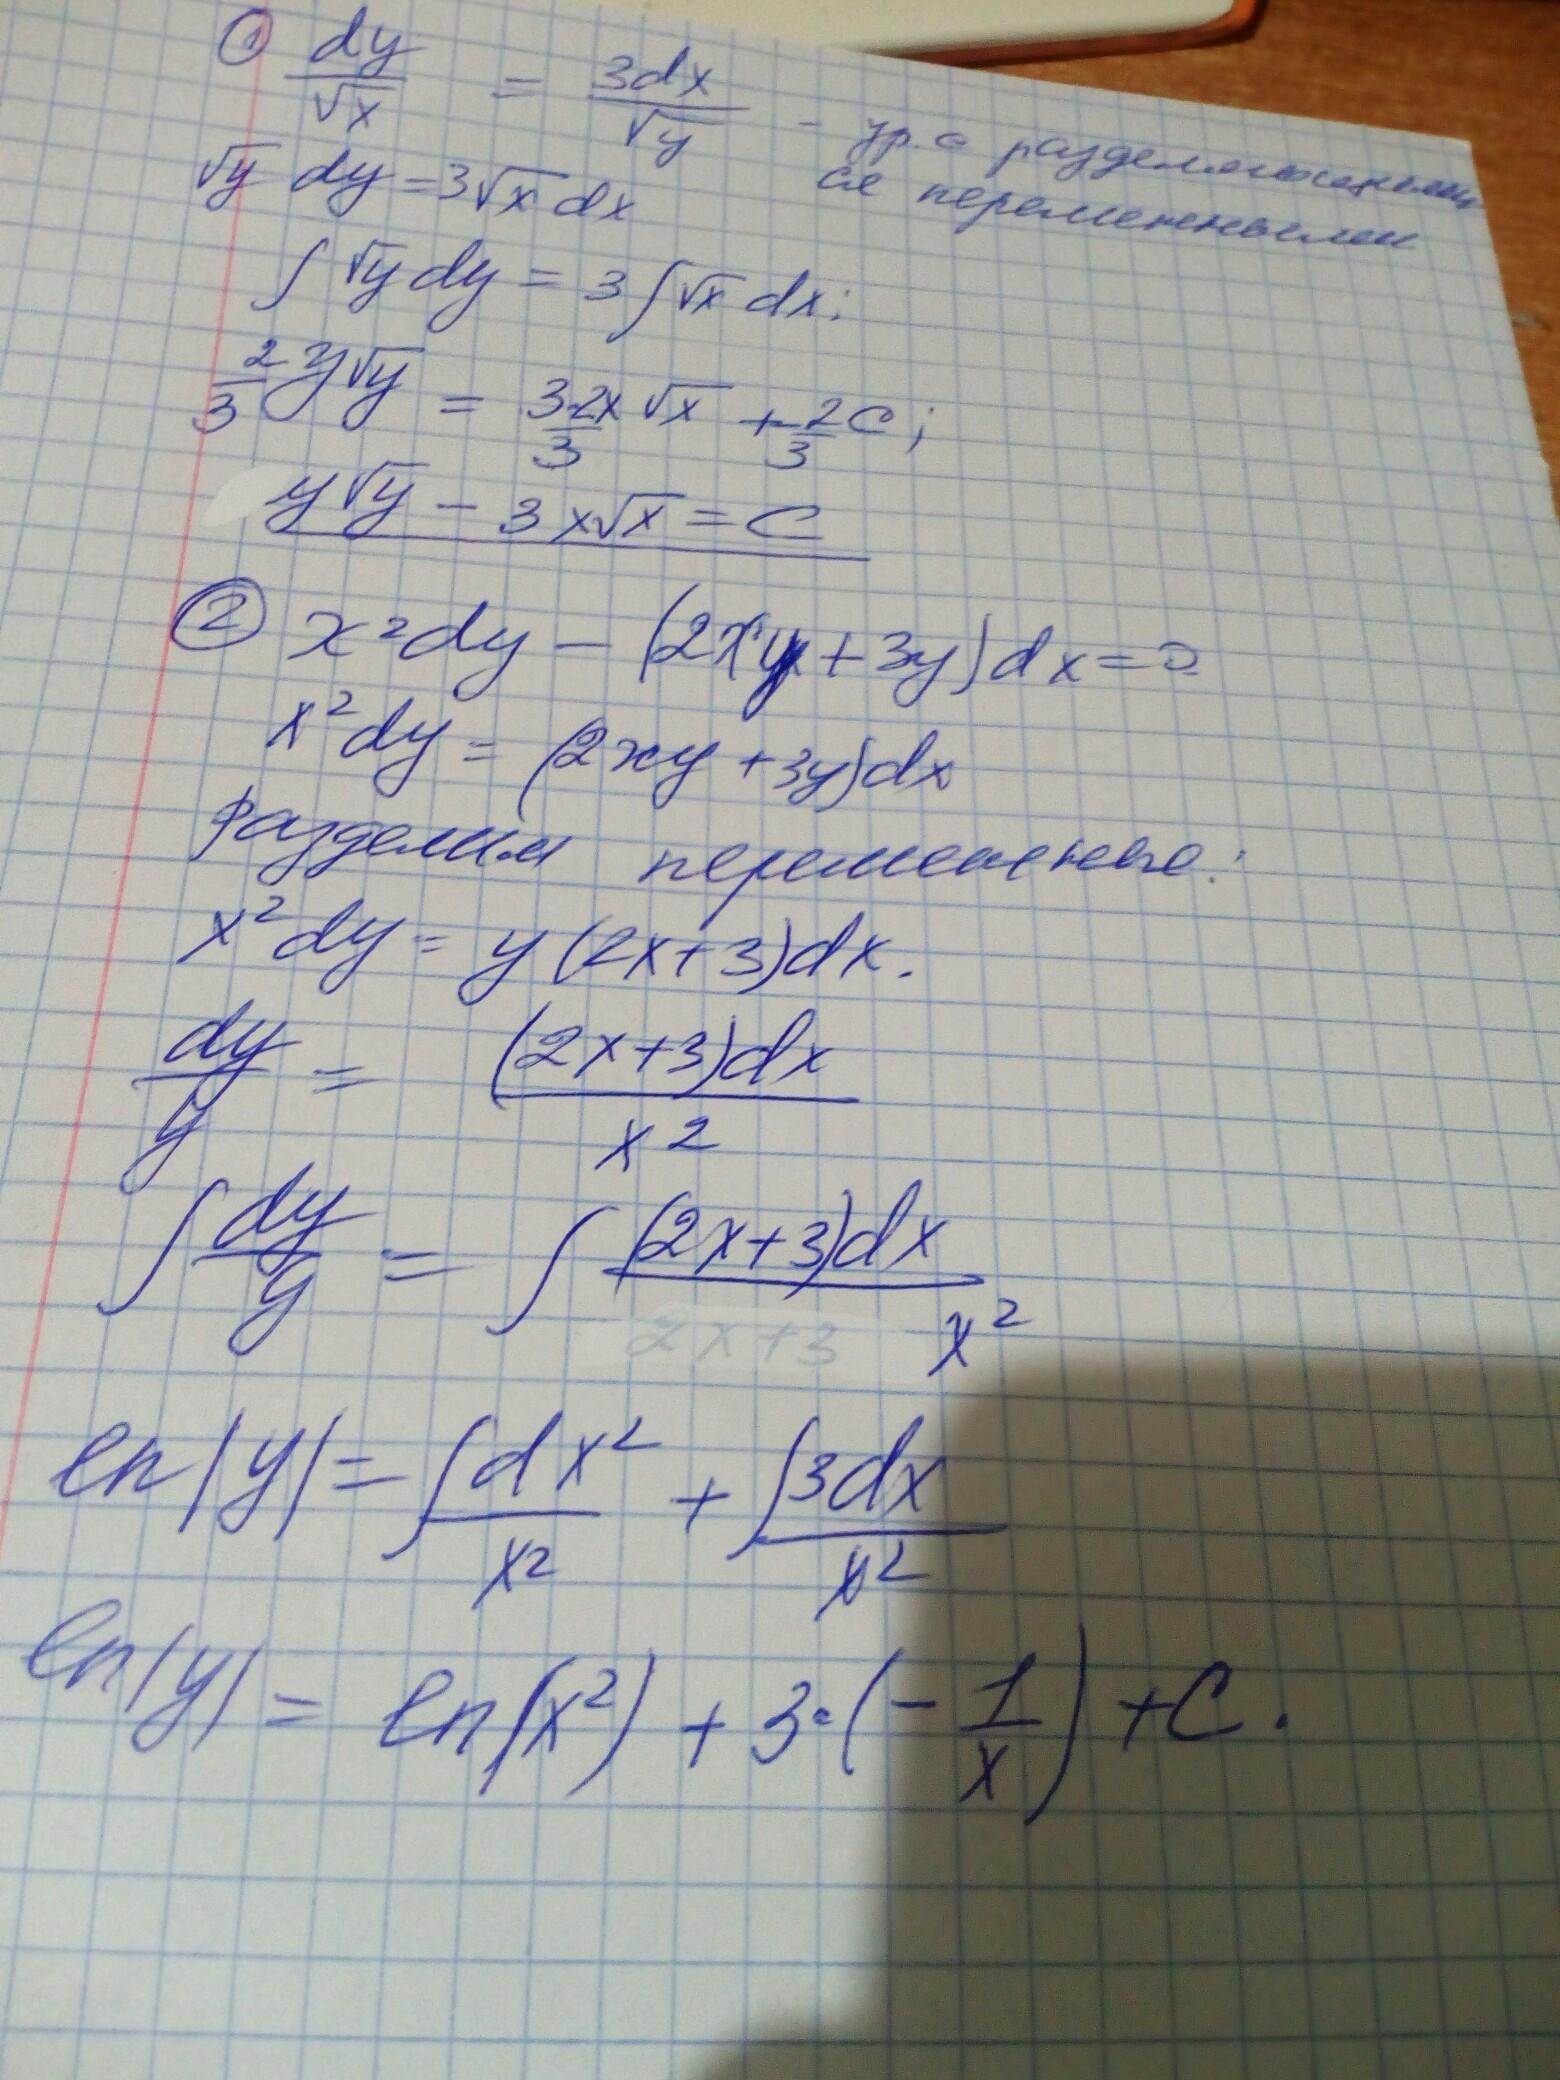 ① dy/√x = 3dx/√y - ур. с разделяющими
ся переменными
√y dy = 3√x dx
∫ √y dy = 3 ∫ √x dx;
2/3 y√y = 3·2x/3 √x + 2/3 C;
y√y - 3x√x = C
② x² dy - (2xy + 3y) dx = 0
x² dy = (2xy + 3y) dx
Разделим переменные:
x² dy = y (2x+3) dx.
dy/y = (2x+3)dx/x²
∫ dy/y = ∫ (2x+3)dx/x²
ln|y| = ∫ dx²/x² + ∫ 3dx/x²
ln|y| = ln(x²) + 3·(- 1/x) + C.